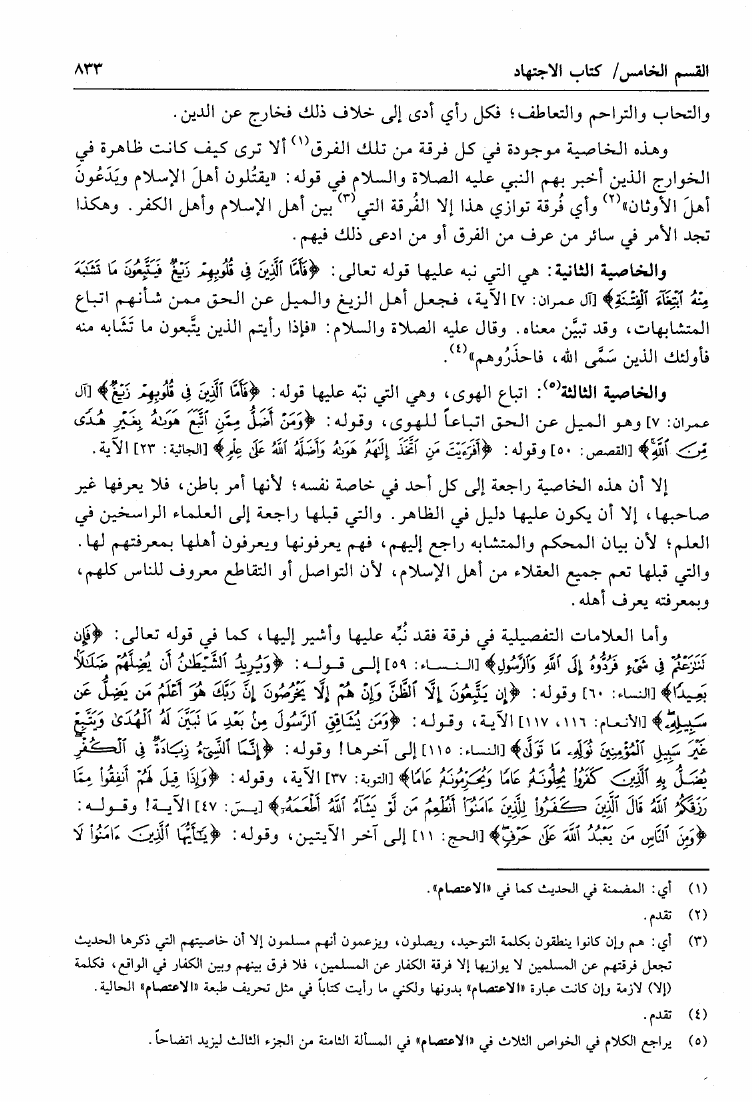 القسم الخامس/ كتاب الاجتهاد ٨٣٣
والتحاب والتراحم والتعاطف؛ فكل رأي أدى إلى خلاف ذلك فخارج عن الدين.
وهذه الخاصية موجودة في كل فرقة من تلك الفرق(١) ألا ترى كيف كانت ظاهرة في
الخوارج الذين أخبر بهم النبي عليه الصلاة والسلام في قوله: «يقتُلون أهلَ الإسلام ويَدَعُونَ
أهلَ الأوثان»(٢) وأي فُرقة توازي هذا إلا الفُرقة التي(٣) بين أهل الإسلام وأهل الكفر. وهكذا
تجد الأمر في سائر من عرف من الفرق أو من ادعى ذلك فيهم.
والخاصية الثانية: هي التي نبه عليها قوله تعالى: ﴿فَأَمَّا ٱلَّذِينَ فِى قُلُوبِهِمْ زَيْغٌ فَيَتَّبِعُونَ مَا تَشَٰبَهَ
مِنْهُ ٱبْتِغَآءَ ٱلْفِتْنَةِ﴾ [آل عمران: ٧] الآية، فجعل أهل الزيغ والميل عن الحق ممن شأنهم اتباع
المتشابهات، وقد تبيَّن معناه. وقال عليه الصلاة والسلام: «فإذا رأيتم الذين يتَّبعون ما تَشَابه منه
فأولئك الذين سَمَّى الله، فاحذَرُوهم»(٤).
والخاصية الثالثة(٥): اتباع الهوى، وهي التي نبّه عليها قوله: ﴿فَأَمَّا ٱلَّذِينَ فِى قُلُوبِهِمْ زَيْغٌ﴾ [آل
عمران: ٧] وهو الميل عن الحق اتباعاً للهوى، وقوله: ﴿وَمَنْ أَضَلُّ مِمَّنِ ٱتَّبَعَ هَوَىٰهُ بِغَيْرِ هُدًى
مِّنَ ٱللَّهِ﴾ [القصص: ٥٠] وقوله: ﴿أَفَرَءَيْتَ مَنِ ٱتَّخَذَ إِلَٰهَهُۥ هَوَىٰهُ وَأَضَلَّهُ ٱللَّهُ عَلَىٰ عِلْمٍ﴾ [الجاثية: ٢٣] الآية.
إلا أن هذه الخاصية راجعة إلى كل أحد في خاصة نفسه؛ لأنها أمر باطن، فلا يعرفها غير
صاحبها، إلا أن يكون عليها دليل في الظاهر. والتي قبلها راجعة إلى العلماء الراسخين في
العلم؛ لأن بيان المحكم والمتشابه راجع إليهم، فهم يعرفونها ويعرفون أهلها بمعرفتهم لها.
والتي قبلها تعم جميع العقلاء من أهل الإسلام، لأن التواصل أو التقاطع معروف للناس كلهم،
وبمعرفته يعرف أهله.
وأما العلامات التفصيلية في فرقة فقد نُبِّه عليها وأشير إليها، كما في قوله تعالى: ﴿فَإِن
تَنَٰزَعْتُمْ فِى شَىْءٍ فَرُدُّوهُ إِلَى ٱللَّهِ وَٱلرَّسُولِ﴾ [النساء: ٥٩] إلى قوله: ﴿وَيُرِيدُ ٱلشَّيْطَٰنُ أَن يُضِلَّهُمْ ضَلَٰلًۢا
بَعِيدًا﴾ [النساء: ٦٠] وقوله: ﴿إِن يَتَّبِعُونَ إِلَّا ٱلظَّنَّ وَإِنْ هُمْ إِلَّا يَخْرُصُونَ إِنَّ رَبَّكَ هُوَ أَعْلَمُ مَن يَضِلُّ عَن
سَبِيلِهِۦ﴾ [الأنعام: ١١٦، ١١٧] الآية، وقوله: ﴿وَمَن يُشَاقِقِ ٱلرَّسُولَ مِنۢ بَعْدِ مَا تَبَيَّنَ لَهُ ٱلْهُدَىٰ وَيَتَّبِعْ
غَيْرَ سَبِيلِ ٱلْمُؤْمِنِينَ نُوَلِّهِۦ مَا تَوَلَّىٰ﴾ [النساء: ١١٥] إلى آخرها! وقوله: ﴿إِنَّمَا ٱلنَّسِىٓءُ زِيَادَةٌ فِى ٱلْكُفْرِ
يُضَلُّ بِهِ ٱلَّذِينَ كَفَرُوا۟ يُحِلُّونَهُۥ عَامًا وَيُحَرِّمُونَهُۥ عَامًا﴾ [التوبة: ٣٧] الآية، وقوله: ﴿وَإِذَا قِيلَ لَهُمْ أَنفِقُوا۟ مِمَّا
رَزَقَكُمُ ٱللَّهُ قَالَ ٱلَّذِينَ كَفَرُوا۟ لِلَّذِينَ ءَامَنُوٓا۟ أَنُطْعِمُ مَن لَّوْ يَشَآءُ ٱللَّهُ أَطْعَمَهُۥٓ﴾ [يس: ٤٧] الآية! وقوله:
﴿وَمِنَ ٱلنَّاسِ مَن يَعْبُدُ ٱللَّهَ عَلَىٰ حَرْفٍ﴾ [الحج: ١١] إلى آخر الآيتين، وقوله: ﴿يَٰٓأَيُّهَا ٱلَّذِينَ ءَامَنُوا۟ لَا
(١) أي: المضمنة في الحديث كما في «الاعتصام».
(٢) تقدم.
(٣) أي: هم وإن كانوا ينطقون بكلمة التوحيد، ويصلون، ويزعمون أنهم مسلمون إلا أن خاصيتهم التي ذكرها الحديث
تجعل فرقتهم عن المسلمين لا يوازيها إلا فرقة الكفار عن المسلمين، فلا فرق بينهم وبين الكفار في الواقع، فكلمة
(إلا) لازمة وإن كانت عبارة «الاعتصام» بدونها ولكني ما رأيت كتاباً في مثل تحريف طبعة «الاعتصام» الحالية.
(٤) تقدم.
(٥) يراجع الكلام في الخواص الثلاث في «الاعتصام» في المسألة الثامنة من الجزء الثالث ليزيد اتضاحاً.